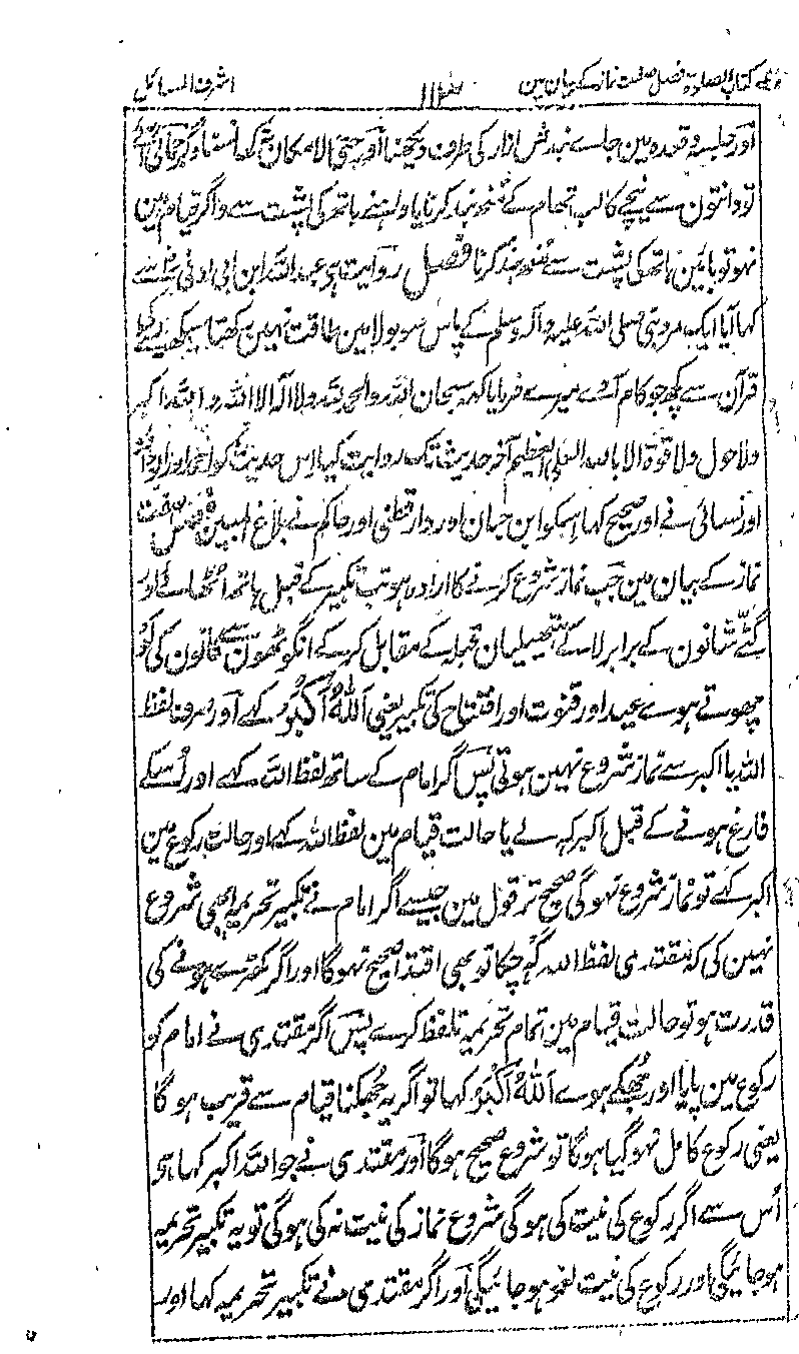 کتاب الصلوۃ فصل صفت نماز کے بیان مین ۱۱۲ اشرف المسائل
اور جلسہ وقعدہ مین جاے بندش ازار کی طرف دیکھنا اور حتی الامکان کھانسنا اور جمائی آئے
تو دانتون سے نیچے کا لب تھام کے منھ بند کرنا یا داہنے ہاتھ کی پشت سے واگر قیام مین
نہو تو بائین ہاتھ کی پشت سے منھ بند کرنا فصل روایت ہی عبد اللہ ابن ابی اوفی سے
کہا آیا ایک مرد نبی صلی اللہ علیہ وآلہ وسلم کے پاس سو بولا مین طاقت نہین رکھتا سیکھنے کی
قرآن سے کچھ جو کام آوے میرے فرمایا کہہ سبحان اللہ والحمد للہ ولا الہ الا اللہ واللہ اکبر
ولا حول ولا قوۃ الا باللہ العلی العظیم آخر حدیث تک روایت کیا اس حدیث کو احمد اور ابوداؤد
اور نسائی نے اور صحیح کہا اسکو ابن حبان اور دارقطنی اور حاکم نے بلاغ المبین فصل صفت
نماز کے بیان مین جب نماز شروع کرنے کا ارادہ ہو تب تکبیر کے قبل ہاتھ اٹھائے اور
گٹے شانون کے برابر لا کے ہتھیلیان قبلہ کے مقابل کر کے انگوٹھون سے کانون کی لو
چھوتے ہوے عید اور قنوت اور افتتاح کی تکبیر یعنی اَللّٰہُ اَکْبَرُ کہے اور صرف لفظ
اللہ یا اکبر سے نماز شروع نہین ہوتی پس اگر امام کے ساتھ لفظ اللہ کہے اور اُسکے
فارغ ہونے کے قبل اکبر کہہ لے یا حالت قیام مین لفظ اللہ کہا اور حالت رکوع مین
اکبر کہے تو نماز شروع نہو گی صحیح تر قول مین جیسے اگر امام نے تکبیر تحریمہ ابھی شروع
نہین کی کہ مقتدی لفظ اللہ کہہ چکا تو بھی اقتدا صحیح نہو گا اور اگر کھڑے ہونے کی
قدرت ہو تو حالت قیام مین تمام تحریمہ تلفظ کرے پس اگر مقتدی نے امام کو
رکوع مین پایا اور جھکے ہوے اَللّٰہُ اَکْبَرُ کہا تو اگر یہ جھکنا قیام سے قریب ہو گا
یعنی رکوع کامل نہو گیا ہو گا تو شروع صحیح ہو گا اور مقتدی نے جو اللہ اکبر کہا ہو
اُس سے اگر رکوع کی نیت کی ہو گی شروع نماز کی نیت نہ کی ہو گی تو یہ تکبیر تحریمہ
ہو جائیگی اور رکوع کی نیت لغو ہو جائیگی اور اگر مقتدی نے تکبیر تحریمہ کہا اور